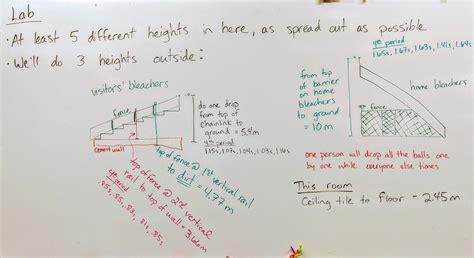 Lab
• At least 5 different heights in here, as spread out as possible
• We'll do 3 heights outside:
visitors' bleachers
fence
cement wall
do one drop
from top of
chainlink to
ground = 5.4m
4th period
1.15s, 1.07s, 1.04s, 1.03s, 1.16s
top of fence @ 1st
vertical rail
to dirt = 4.77m
top of fence @ 2nd
vertical
rail to top of wall = 3.62m
4th period
.85s, .85s, .83s, .81s, .85s
from top
of barrier
on home
bleachers
to ground
= 10m
4th period
1.65s, 1.67s, 1.63s, 1.41s, 1.64s
home bleachers
fence
one person will drop all the balls one
by one while everyone else times
This room
Ceiling tile to floor = 2.45m